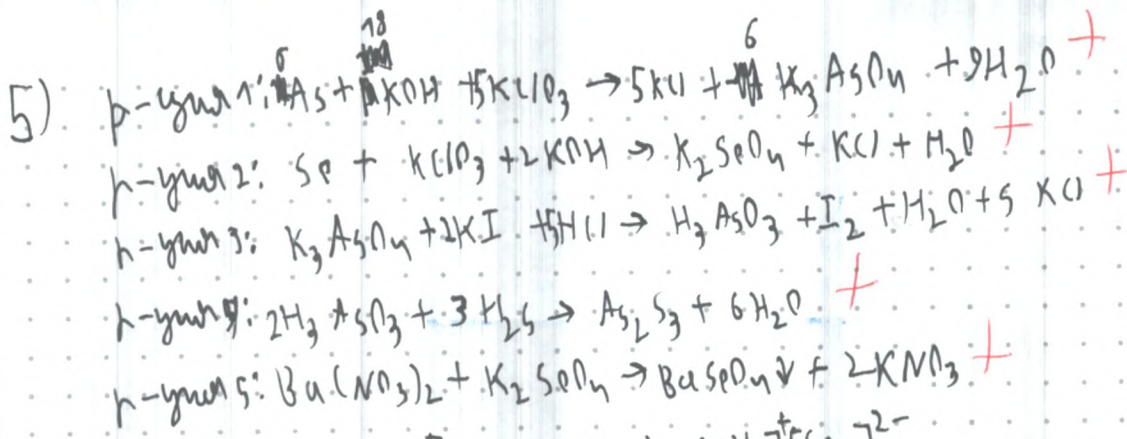 5) р-ция 1: 6As + 18KOH + 5KClO₃ → 5KCl + 6K₃AsO₄ + 9H₂O +
р-ция 2: Se + KClO₃ + 2KOH → K₂SeO₄ + KCl + H₂O +
р-ция 3: K₃AsO₄ + 2KI + 5HCl → H₃AsO₃ + I₂ + H₂O + 5 KCl +
р-ция 4: 2H₃AsO₃ + 3H₂S → As₂S₃ + 6H₂O +
р-ция 5: Ba(NO₃)₂ + K₂SeO₄ → BaSeO₄↓ + 2KNO₃ +